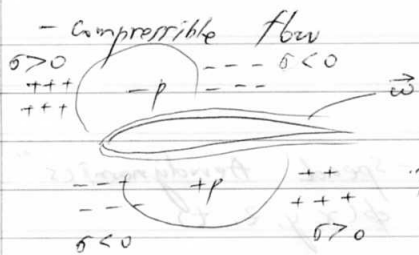 - compressible flow
σ>0 - - - σ<0
+++ -p - - -
+++ ω⃗
- - + +p + +
- - - + + +
σ<0 σ>0